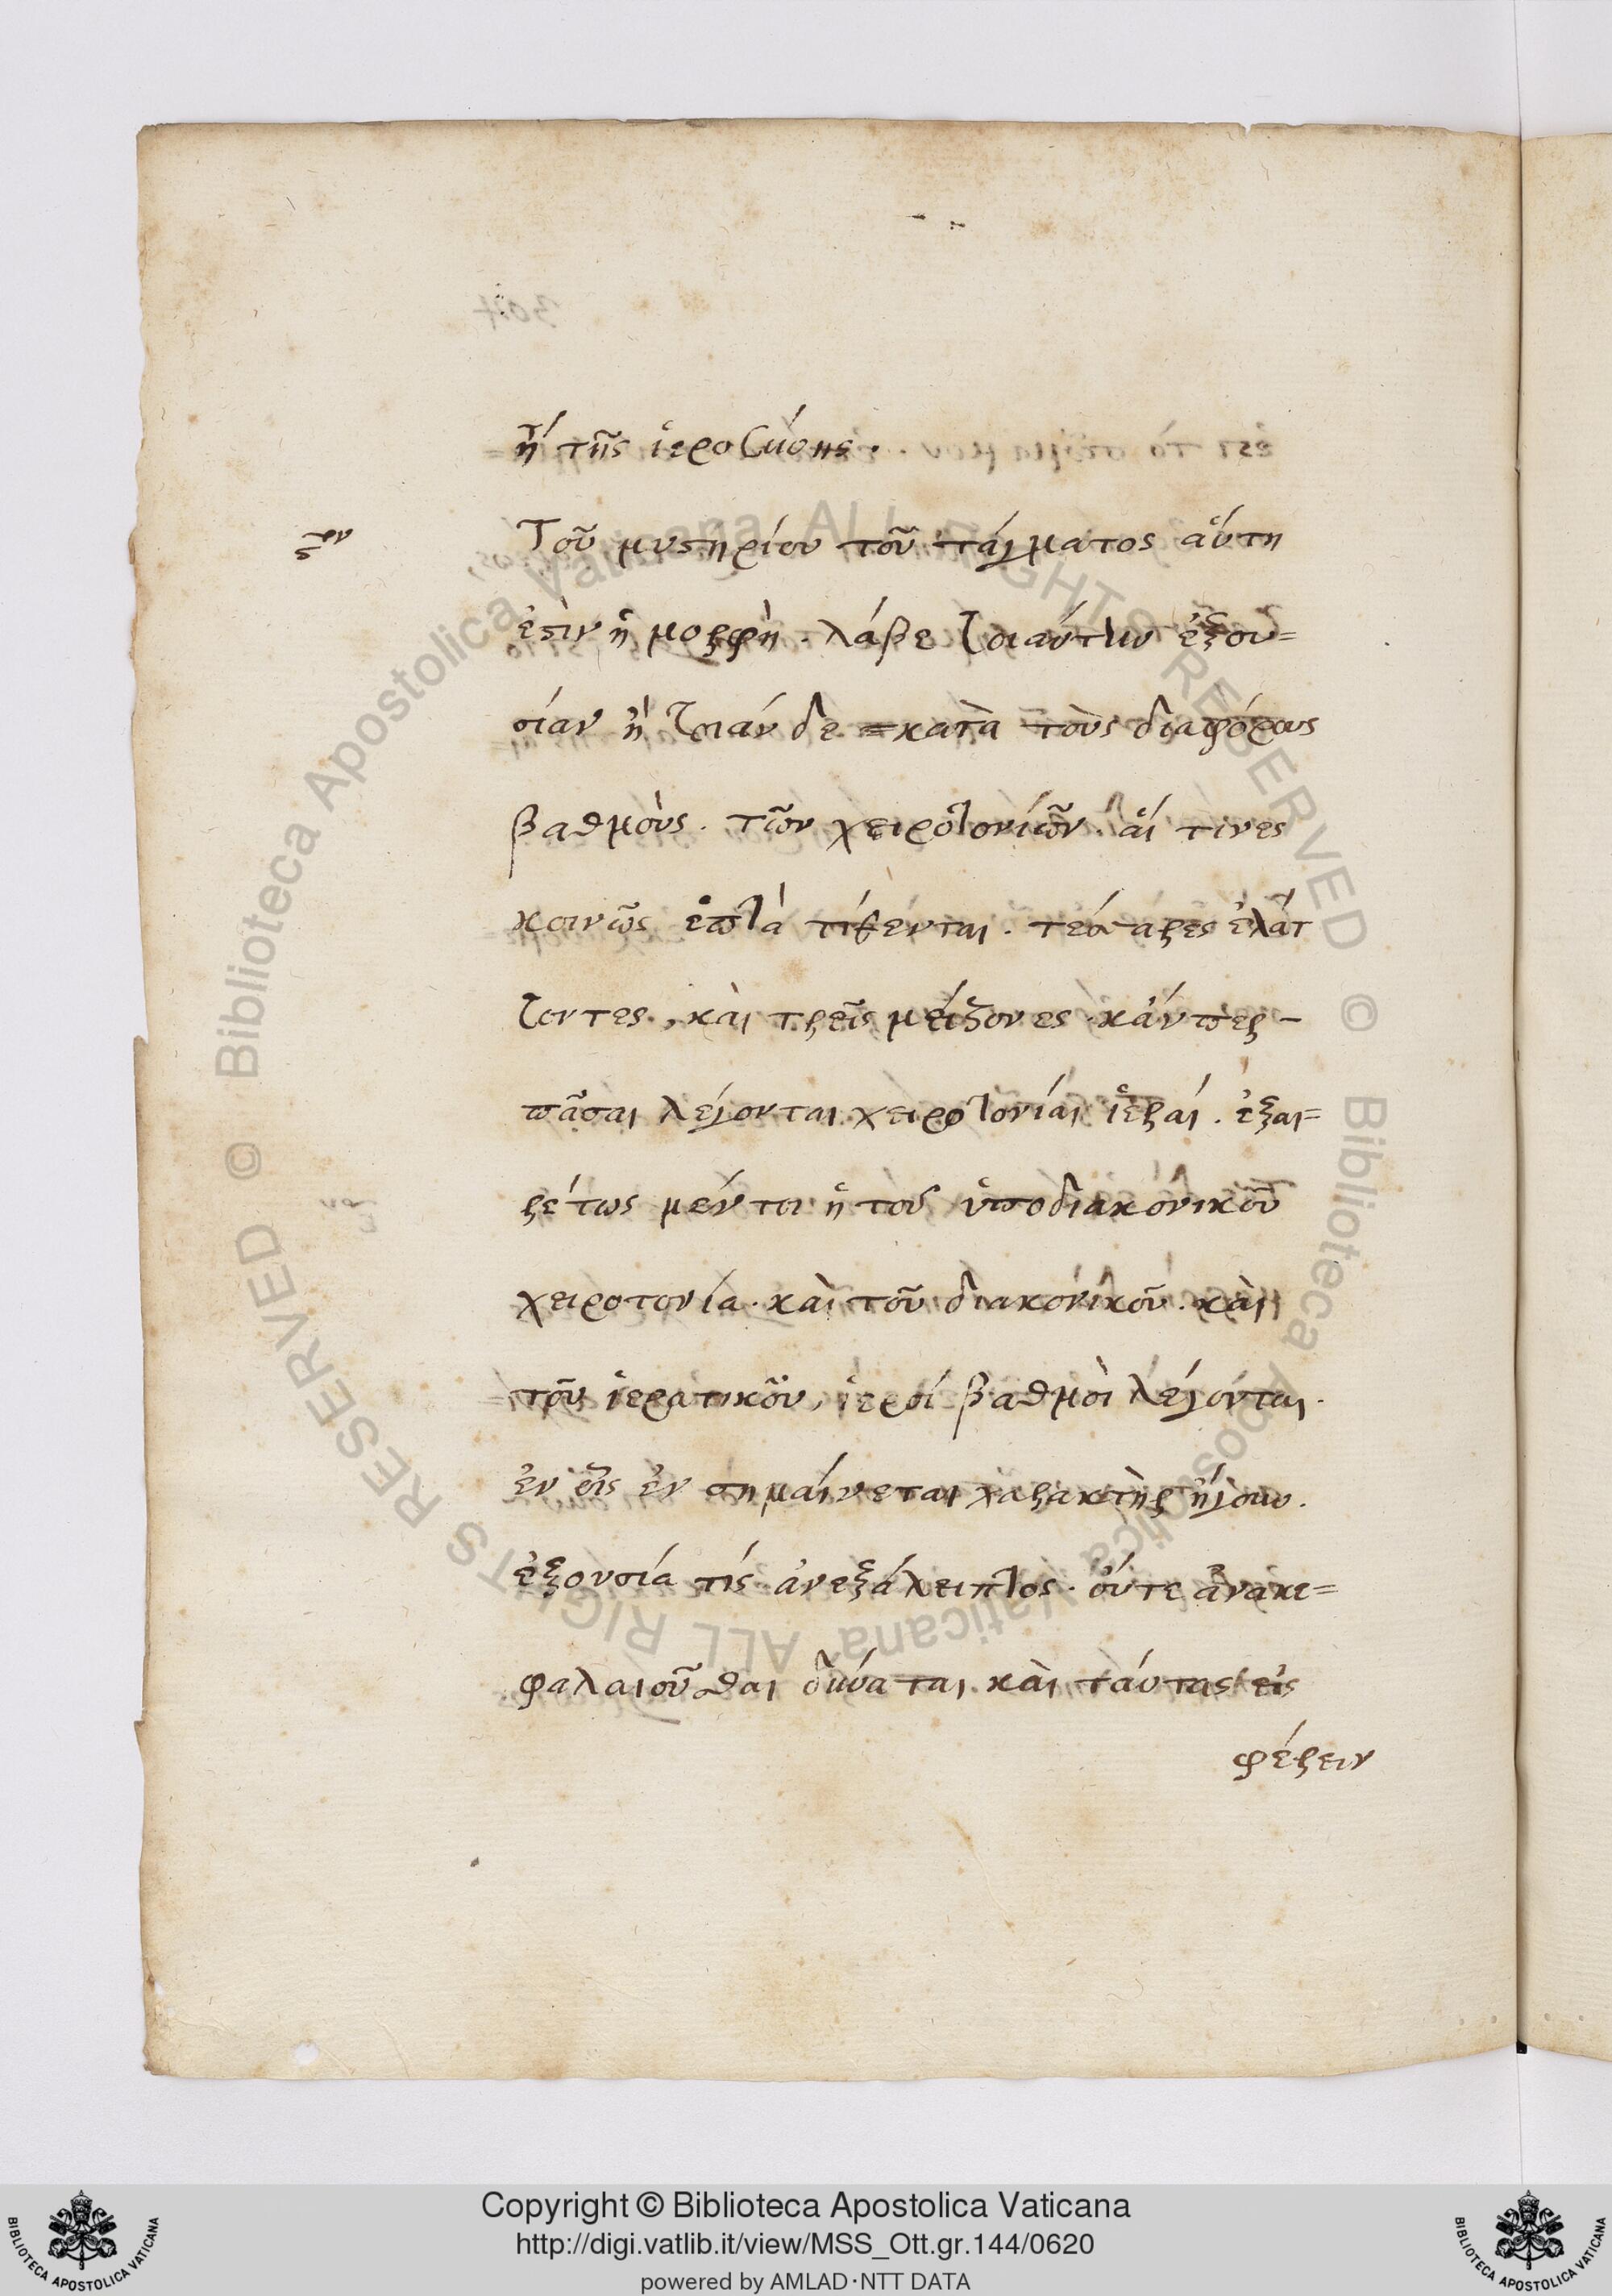 ἢ τῆς ἱεροσύνης.
Τοῦ μυστηρίου τοῦ τάγματος αὕτη
ἐστὶν ἡ μορφὴ. λάβε τοιαύτην ἐξου=
σίαν ἢ τοιάν δε = κατὰ τοὺς διαφόρους
βαθμοὺς. τῶν χειροτονίῶν. αἵ τινες
κοινῶς ἑπτὰ τίθενται. τέσσαρες ἐλάτ
τοντες, καὶ τρεῖς μείζονες. κἄνπερ –
πᾶσαι λέγονται χειροτονίαι ἱεραί. ἐξαι=
ρέτως μέντοι ἡ τοῦ ὑποδιακονικοῦ
χειροτονία. καὶ τοῦ διακονικοῦ. καὶ
τοῦ ἱερατικοῦ, ἱεροί βαθμοὶ λέγονται.
ἐν οἷς ἐν σημαίνεται χαρακτὴρ ἤγουν.
ἐξουσία τίς ἀνεξάλειπτος. οὔτε ἀνακε=
φαλαιοῦσθαι δύναται. καὶ ταύτας εἰς
φέρειν
Copyright © Biblioteca Apostolica Vaticana
http://digi.vatlib.it/view/MSS_Ott.gr.144/0620
powered by AMLAD·NTT DATA
BIBLIOTECA APOSTOLICA VATICANA
BIBLIOTECA APOSTOLICA VATICANA
© Biblioteca Apostolica Vaticana ALL RIGHTS RESERVED
© Biblioteca Apostolica Vaticana ALL RIGHTS RESERVED